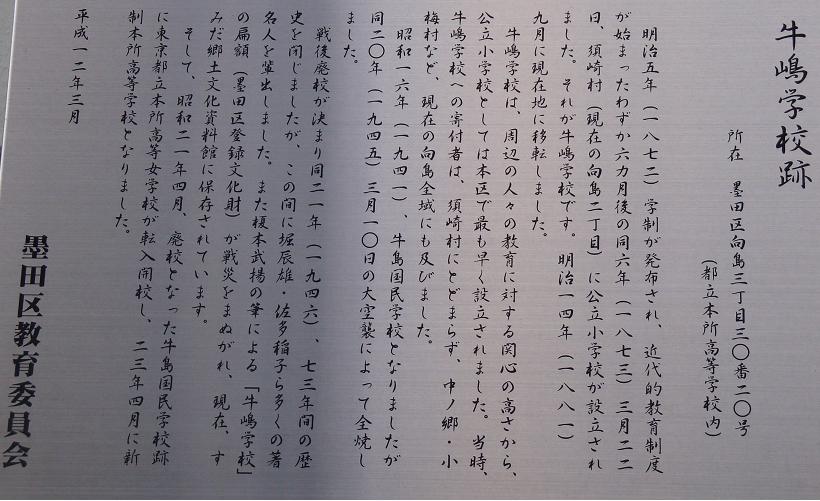 牛嶋学校跡
所在　墨田区向島三丁目三〇番二〇号
（都立本所高等学校内）
明治五年（一八七二）学制が発布され、近代的教育制度
が始まったわずか六カ月後の同六年（一八七三）三月二二
日、須崎村（現在の向島二丁目）に公立小学校が設立され
ました。それが牛嶋学校です。明治一四年（一八八一）
九月に現在地に移転しました。
牛嶋学校は、周辺の人々の教育に対する関心の高さから、
公立小学校としては本区で最も早く設立されました。当時、
牛嶋学校への寄付者は、須崎村にとどまらず、中ノ郷・小
梅村など、現在の向島全域にも及びました。
昭和一六年（一九四一）、牛島国民学校となりましたが
同二〇年（一九四五）三月一〇日の大空襲によって全焼し
ました。
戦後廃校が決まり同二一年（一九四六）、七三年間の歴
史を閉じましたが、この間に堀辰雄・佐多稲子ら多くの著
名人を輩出しました。また榎本武揚の筆による「牛嶋学校」
の扁額（墨田区登録文化財）が戦災をまぬがれ、現在、す
みだ郷土文化資料館に保存されています。
そして、昭和二一年四月、廃校となった牛島国民学校跡
に東京都立本所高等女学校が転入開校し、二三年四月に新
制本所高等学校となりました。
平成一二年三月
墨田区教育委員会